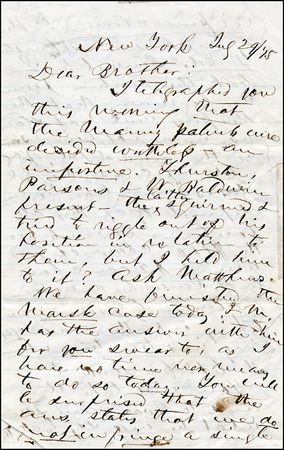 New York July 29/75
Dear Brother:
I telegraphed you
this morning that
the Manny patents are
decided worthless - an
imposture. Thurston,
Parsons & W. Baldwin
present - the latter squirmed &
tried to riggle out of his
position in relation to
them but I held him
to it? Ask Matthews.
We have finished the
Marsh case today &
has the answer with him
for you swear to, as I
have no time nor
to do so today. You will
be surprised that the
ans. states that we do
not infringe a single